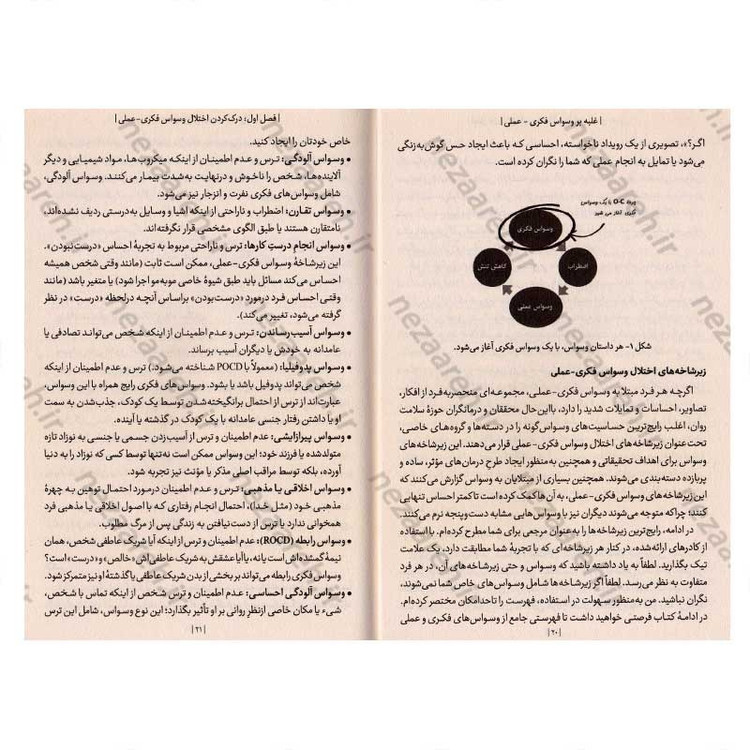 | غلبه بر وسواس فکری - عملی |
اگر؟»، تصویری از یک رویداد ناخواسته، احساسی که باعث ایجاد حس گوش‌به‌زنگی
می‌شود یا تمایل به انجام عملی که شما را نگران کرده است.
چرخه O-C با یک وسواس
فکری آغاز می شود
وسواس فکری
اضطراب
کاهش تنش
وسواس عملی
شکل ۱- هر داستان وسواس، با یک وسواس فکری آغاز می‌شود.
زیرشاخه‌های اختلال وسواس فکری-عملی
اگرچه هر فرد مبتلا به وسواس فکری-عملی، مجموعه‌ای منحصربه‌فرد از افکار،
تصاویر، احساسات و تمایلات شدید را دارد، بااین‌حال محققان و درمانگران حوزهٔ سلامت
روان، اغلب رایج‌ترین حساسیت‌های وسواس‌گونه را در دسته‌ها و گروه‌های خاصی،
تحت‌عنوان زیرشاخه‌های اختلال وسواس فکری-عملی قرار می‌دهند. این زیرشاخه‌های
وسواس برای اهداف تحقیقاتی و همچنین به‌منظور ایجاد طرح درمان‌های مؤثر، ساده و
پربازده دسته‌بندی می‌شوند. همچنین بسیاری از مبتلایان به وسواس گزارش می‌کنند که
این زیرشاخه‌های وسواس فکری-عملی، به آن‌ها کمک کرده است تا کمتر احساس تنهایی
کنند؛ چراکه متوجه می‌شوند دیگران نیز با وسواس‌هایی مشابه دست‌وپنجه نرم می‌کنند.
در ادامه، رایج‌ترین زیرشاخه‌ها را به‌عنوان مرجعی برای شما مطرح کرده‌ام. با استفاده
از کادرهای ارائه‌شده، در کنار هر زیرشاخه‌ای که با تجربهٔ شما مطابقت دارد، یک علامت
تیک بگذارید. لطفاً به یاد داشته باشید که وسواس و حتی زیرشاخه‌های آن، در هر فرد
متفاوت به نظر می‌رسد. لطفاً اگر زیرشاخه‌ها شامل وسواس‌های خاص شما نمی‌شوند،
نگران نباشید. من به‌منظور سهولت در استفاده، فهرست را تاحدامکان مختصر کرده‌ام.
در ادامهٔ کتاب فرصتی خواهید داشت تا فهرستی جامع از وسواس‌های فکری و عملی
| ۲۰ |
| فصل اول: درک‌کردن اختلال وسواس فکری-عملی |
خاص خودتان را ایجاد کنید.
• وسواس آلودگی: ترس و عدم اطمینان از اینکه میکروب‌ها، مواد شیمیایی و دیگر
آلاینده‌ها، شخص را ناخوش و درنهایت به‌شدت بیمار می‌کنند. وسواس آلودگی،
شامل وسواس‌های فکری نفرت و انزجار نیز می‌شود.
• وسواس تقارن: اضطراب و ناراحتی از اینکه اشیا و وسایل به‌درستی ردیف نشده‌اند،
نامتقارن هستند یا طبق الگوی مشخصی قرار نگرفته‌اند.
• وسواس انجام درستِ کارها: ترس و ناراحتی مربوط به تجربهٔ احساس «درست‌نبودن».
این زیرشاخهٔ وسواس فکری-عملی، ممکن است ثابت (مانند وقتی شخص همیشه
احساس می‌کند مسائل باید طبق شیوهٔ خاصی موبه‌مو اجرا شود) یا متغیر باشد (مانند
وقتی احساس فرد درمورد «درست‌بودن» براساس آنچه درلحظه «درست» در نظر
گرفته می‌شود، تغییر می‌کند).
• وسواس آسیب‌رساندن: ترس و عدم اطمینان از اینکه شخص می‌تواند تصادفی یا
عامدانه به خودش یا دیگران آسیب برساند.
• وسواس پدوفیلیا: (معمولاً با POCD شناخته می‌شود.) ترس و عدم اطمینان از اینکه
شخص می‌تواند پدوفیل باشد یا بشود. وسواس‌های فکری رایج همراه با این وسواس،
عبارت‌اند از ترس از احتمال برانگیخته‌شدن توسط یک کودک، جذب‌شدن به سمت
او یا داشتن رفتار جنسی عامدانه با یک کودک در گذشته یا آینده.
• وسواس پیرازایشی: عدم اطمینان و ترس از آسیب‌زدن جسمی یا جنسی به نوزاد تازه
متولدشده یا فرزند خود؛ این وسواس ممکن است نه‌تنها توسط کسی که نوزاد را به دنیا
آورده، بلکه توسط مراقب اصلی مذکر یا مؤنث نیز تجربه شود.
• وسواس اخلاقی یا مذهبی: ترس و عدم اطمینان درمورد احتمال توهین به چهرهٔ
مذهبی خود (مثل خدا)، احتمال انجام رفتاری که با اصول اخلاقی یا مذهبی فرد
همخوانی ندارد یا ترس از دست‌نیافتن به زندگی پس از مرگ مطلوب.
• وسواس رابطه (ROCD): عدم اطمینان و ترس از اینکه آیا شریک عاطفی شخص، همان
نیمهٔ گمشده‌اش است یا نه، یا آیا عشقش به شریک عاطفی‌اش «خالص» و «درست» است؟
وسواس فکری رابطه می‌تواند بر بخشی از بدن شریک عاطفی یا گذشتهٔ او نیز متمرکز شود.
• وسواس آلودگی احساسی: عدم اطمینان و ترس شخص از اینکه تماس با شخص،
شیء یا مکان خاصی ازنظر روانی بر او تأثیر بگذارد؛ این نوع وسواس، شامل این ترس
| ۲۱ |
nezaareh.ir